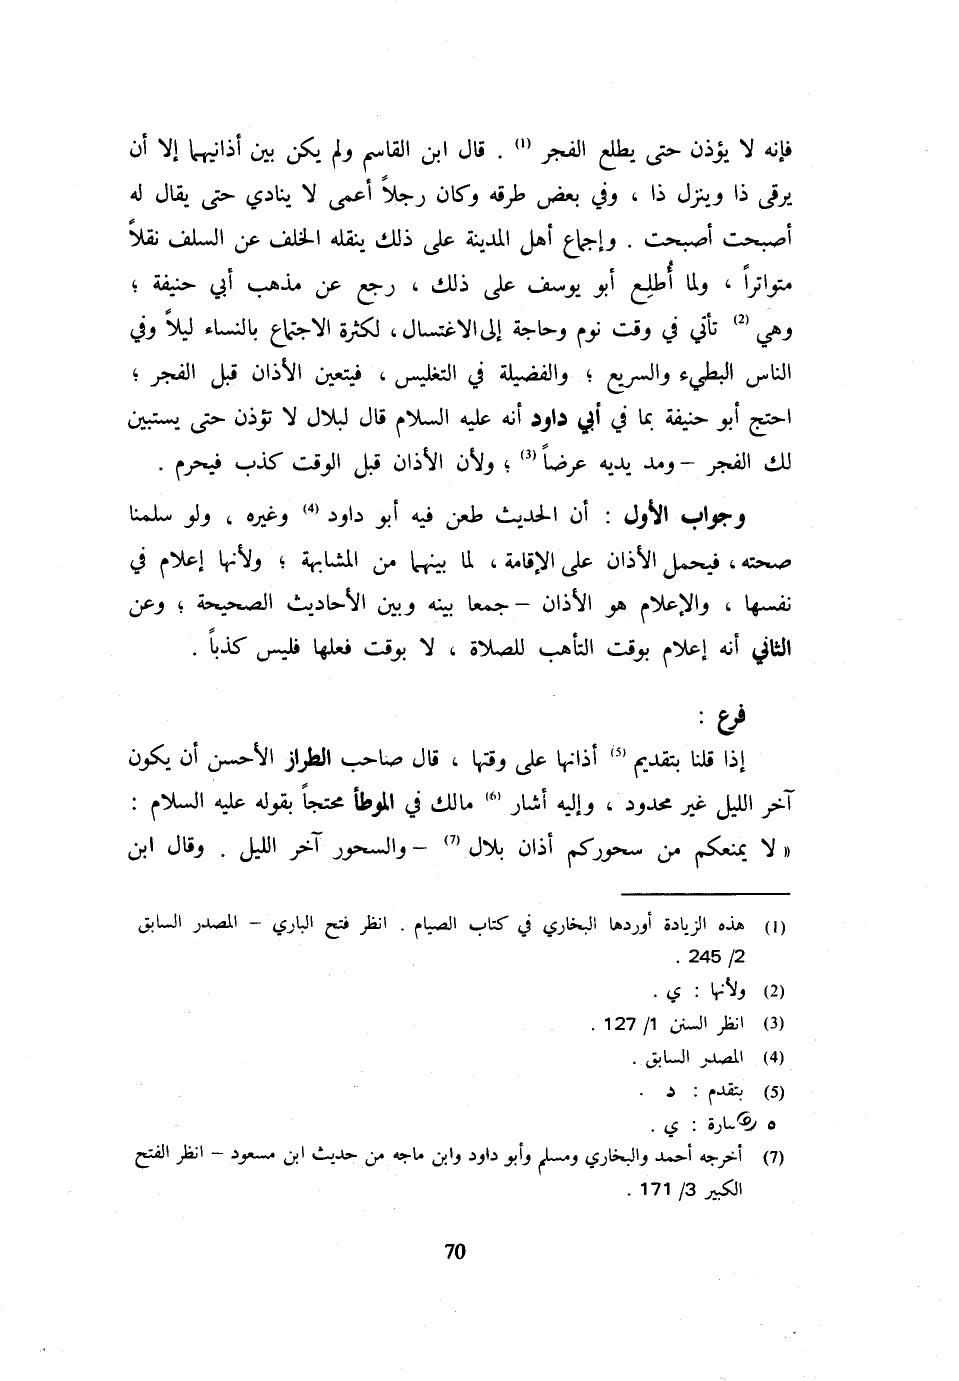 فإنه لا يؤذن حتى يطلع الفجر (1) . قال ابن القاسم ولم يكن بين أذانيهما إلا أن
يرقى ذا وينزل ذا ، وفي بعض طرقه وكان رجلاً أعمى لا ينادي حتى يقال له
أصبحت أصبحت . وإجماع أهل المدينة على ذلك ينقله الخلف عن السلف نقلاً
متواتراً ، ولما أُطلِع أبو يوسف على ذلك ، رجع عن مذهب أبي حنيفة ؛
وهي (2) تأتي في وقت نوم وحاجة إلى الاغتسال ، لكثرة الاجتماع بالنساء ليلاً وفي
الناس البطيء والسريع ؛ والفضيلة في التغليس ، فيتعين الأذان قبل الفجر ؛
احتج أبو حنيفة بما في أبي داود أنه عليه السلام قال لبلال لا تؤذن حتى يستبين
لك الفجر – ومد يديه عرضاً (3) ؛ ولأن الأذان قبل الوقت كذب فيحرم .
وجواب الأول : أن الحديث طعن فيه أبو داود (4) وغيره ، ولو سلمنا
صحته ، فيحمل الأذان على الإقامة ، لما بينهما من المشابهة ؛ ولأنها إعلام في
نفسها ، والإعلام هو الأذان – جمعا بينه وبين الأحاديث الصحيحة ؛ وعن
الثاني أنه إعلام بوقت التأهب للصلاة ، لا بوقت فعلها فليس كذباً .
فرع :
إذا قلنا بتقديم (5) أذانها على وقتها ، قال صاحب الطراز الأحسن أن يكون
آخر الليل غير محدود ، وإليه أشار (6) مالك في الموطأ محتجاً بقوله عليه السلام :
« لا يمنعكم من سحوركم أذان بلال (7) – والسحور آخر الليل . وقال ابن
(1) هذه الزيادة أوردها البخاري في كتاب الصيام . انظر فتح الباري – المصدر السابق
2/ 245 .
(2) ولأنها : ي .
(3) انظر السنن 1/ 127 .
(4) المصدر السابق .
(5) بتقدم : د .
: ي .
(7) أخرجه أحمد والبخاري ومسلم وأبو داود وابن ماجه من حديث ابن مسعود – انظر الفتح
الكبير 3/ 171 .
70